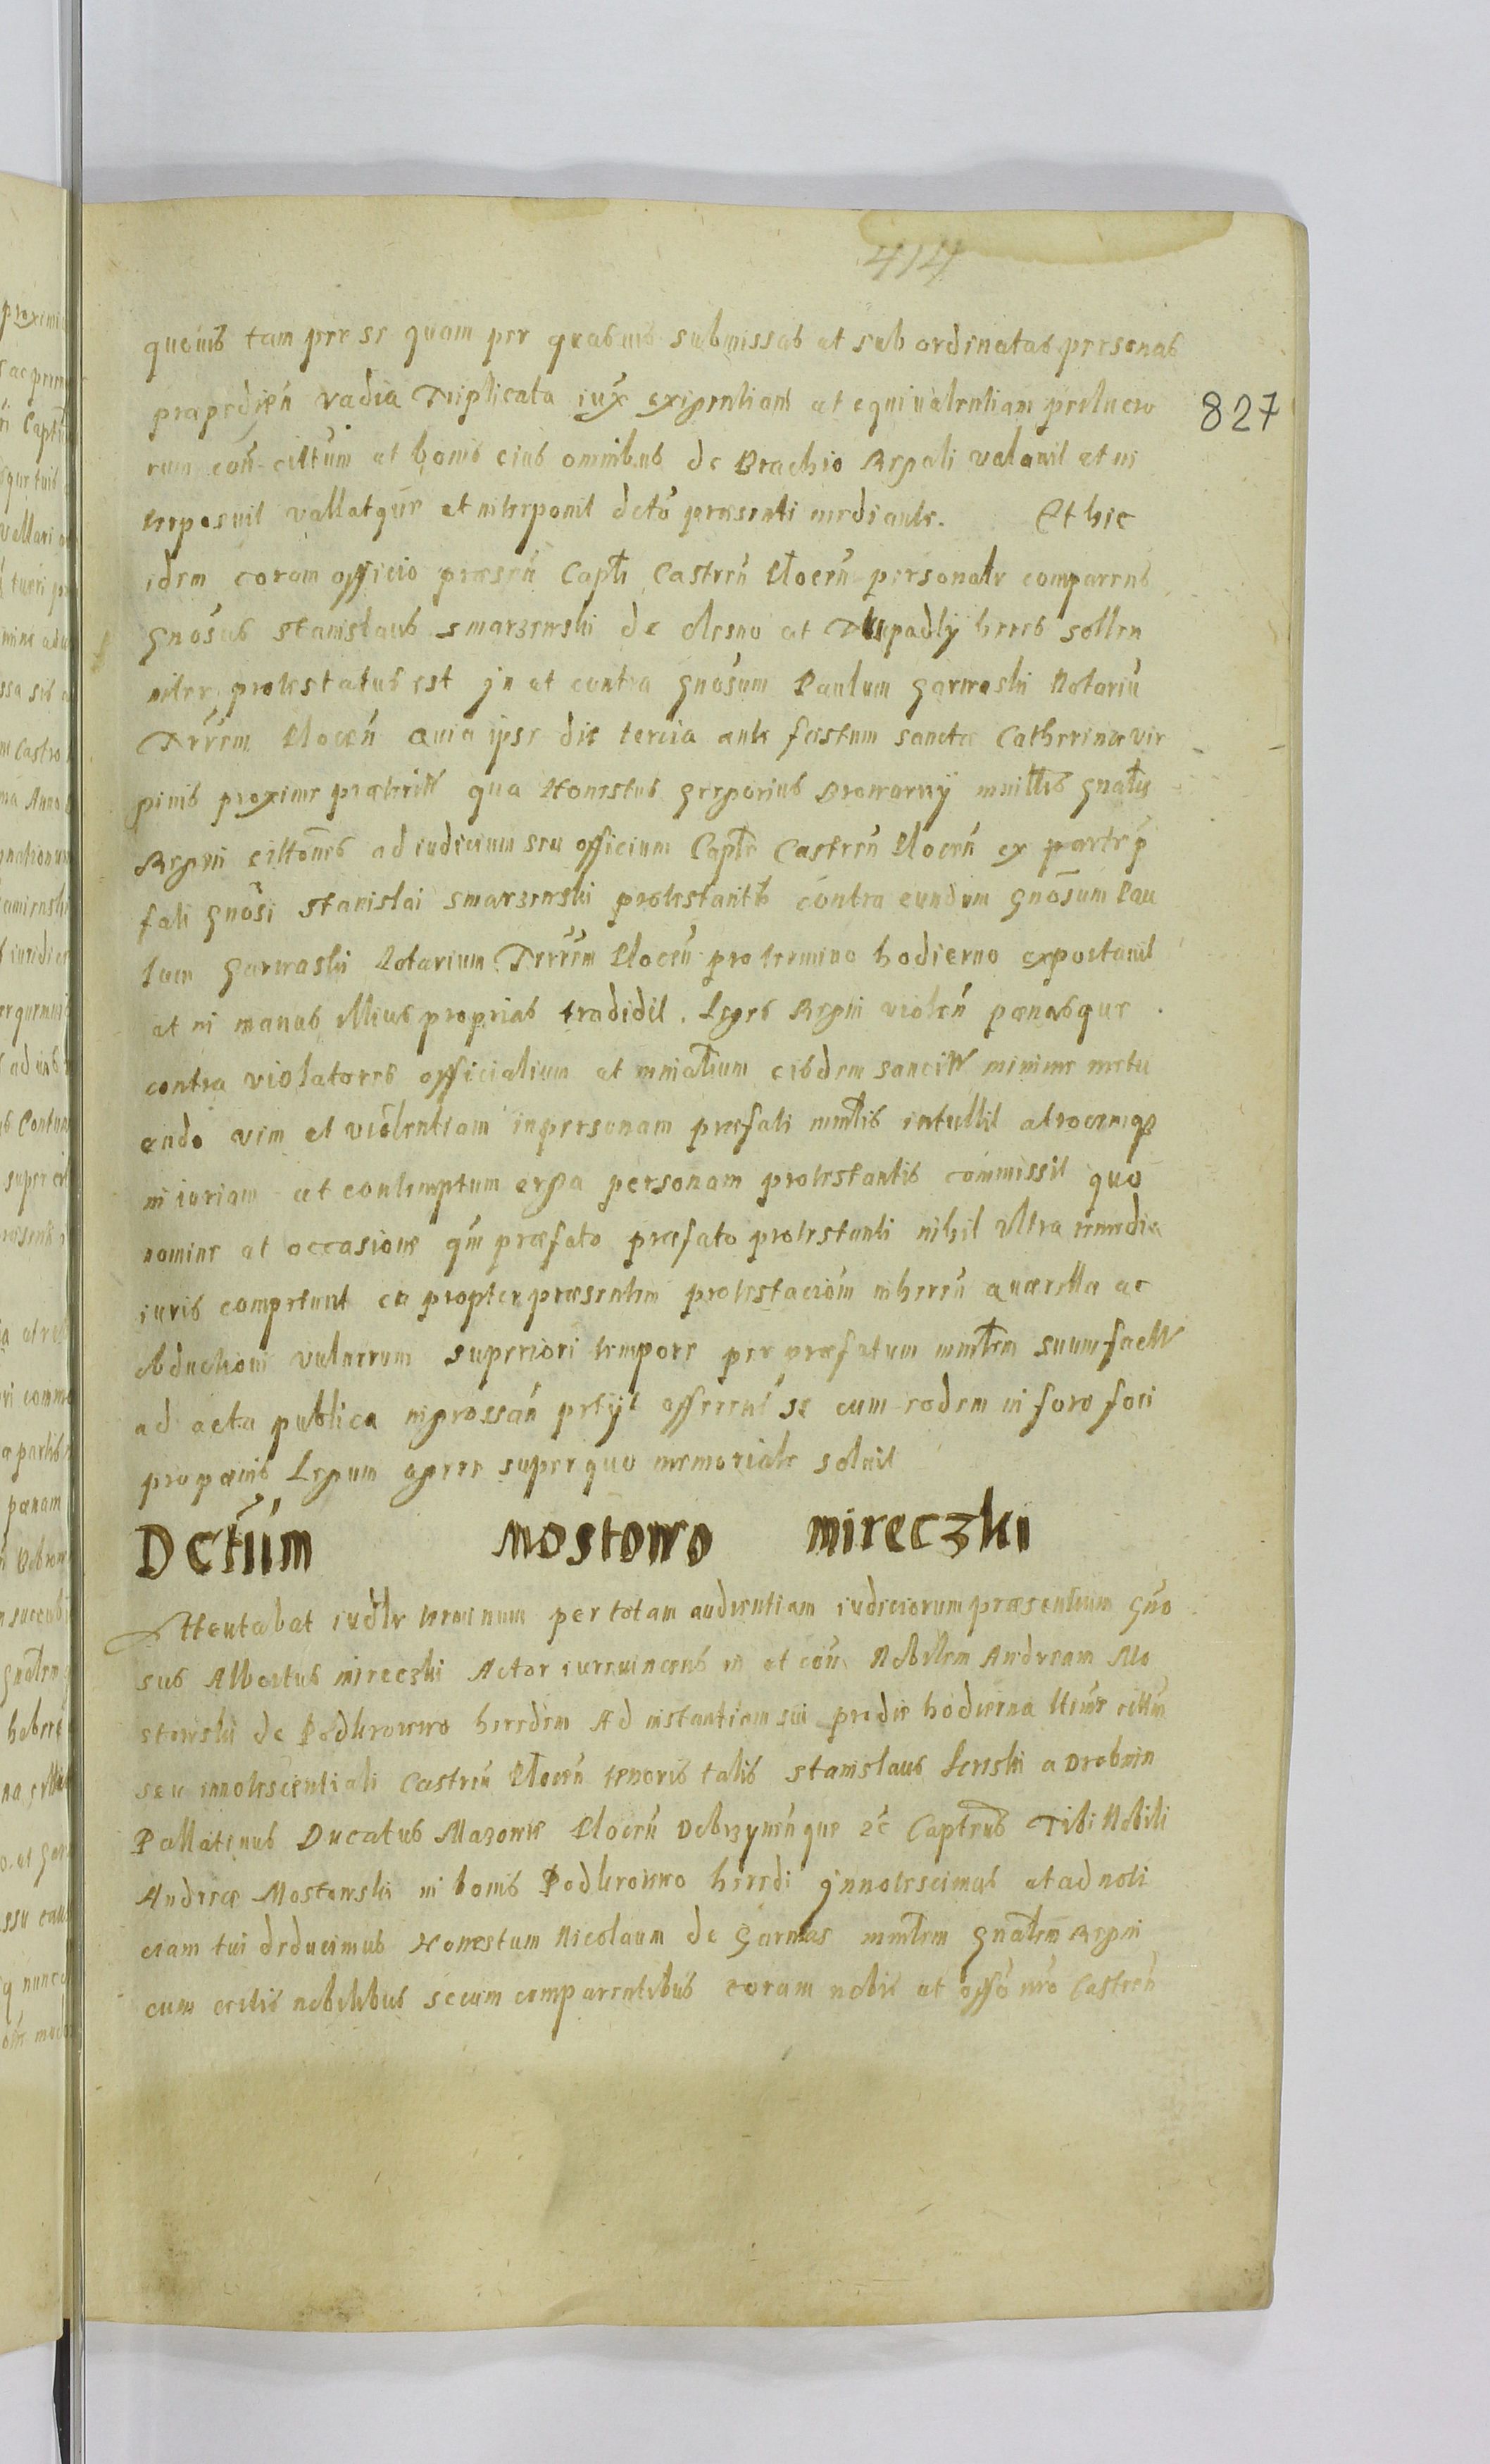 414
827
quovis tam per se quam per quasvis submissas et sub ordinatas personas
præpedien vadia Triplicata iux exigentiam et equivalentiam perlucro
rum con cittum et bonis eius omnibus de Brachio Regali valavit et in
terposuit vallatque et interponit dcto præsenti mediante. Et hic
idem coram officio præsen Capti Castren Plocen personalr comparens
Gnosus Stanislaus Smarzewski de Olesno et Trupadly heres sollen
niter protestatus est jn et contra Gnosum Paulum Garwaski Notariu
Terrem Plocen Quia ipse die tercia ante festum sanctæ Catherinæ vir
ginis proxime præterit qua Honestus Gregorius Browarny mnistls Gnalis
Regni cittones ad iudicium seu officium Captle Castren Plocen ex parte p
fati Gnosi Stanislai Smarzewski protestantis contra eundem Gnosum Pau
lum Garwaski Notarium Terrem Plocen pro termino hodierno exportavit
et in manus illius proprias tradidit. Leges Regni violen pœnasque
contra violatores officialium et mnialium eisdem sancitt minime metu
endo vim et violentiam in personam præfati mnlis intullit atrocemq
iniuriam et contemptum erga personam protestantis commissit quo
nomine et occasione qm præfato præfato protestanti nihil ultra remedia
iuris competunt ea propter præsentem protestaciom inheren quærella ac
obductioni vulnerum superiori tempore per præfatum mnlem suum factt
ad acta publica ingrossan petyt offerens se cum eodem in foro fori
pro pænis Legum agere super quo memoriale solvit
Dctum Mostowo Mireczki
Attentabat iudlr terminum per totam audientiam iudiciorum præsentium Gno
sus Albertus Mireczki Actor iurevincens in et con Nobilem Andream Mo
stowski de Podkrowno heredem Ad instantiam sui pro die hodierna litime cittum
seu innotescentiali Castren Plocen tenoris talis Stanislaus Kriski a Drobnin
Pallatinus Ducatus Mazoviæ Plocen Dobrzynenque &c Captneus Tibi Nobili
Andreæ Mostowski in bonis Podkrowno heredi jnnotescimus et ad noti
ciam tui deducimus Honestum Nicolaum de Garwas mnlem Gnalem Regni
cum certis nobilibus secum comparentibus coram nobis et offo nro Castren